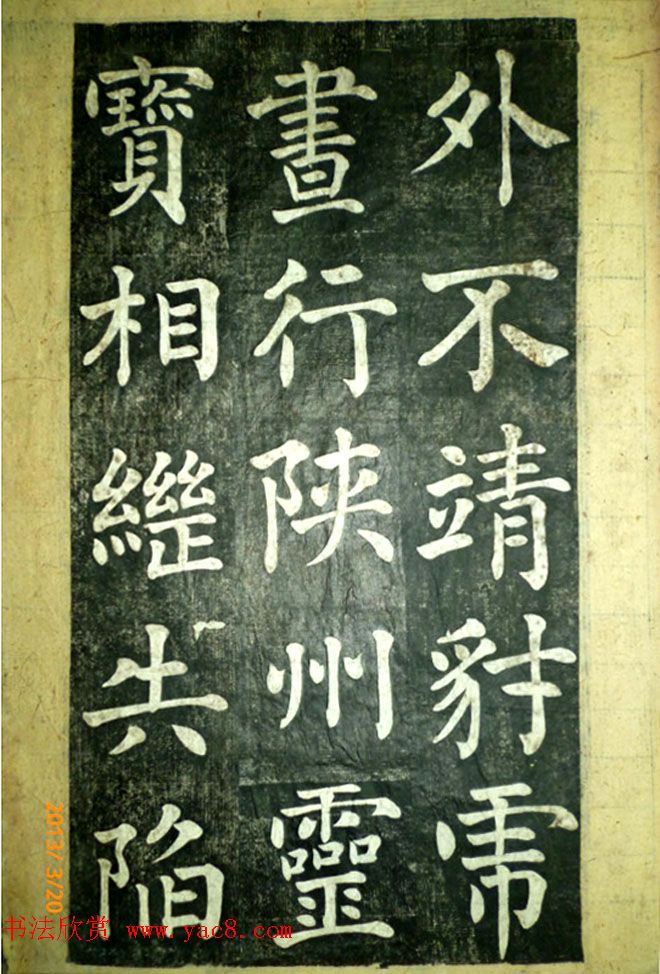 外不靖豺虎
晝行陕州靈
寶相繼失陷
2013/ 3/20
书法欣赏 www.yac8.com